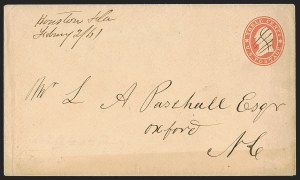 Houston Fla
Febuy 2/61
Mr L A Paschall Esqr
Oxford
N C